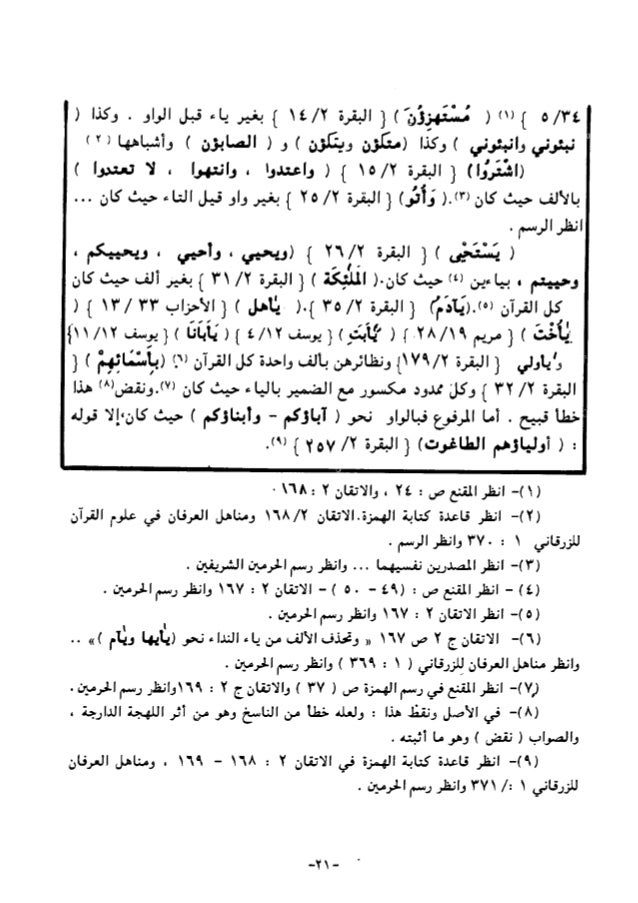 ٥/٣٤ } (١) ( مُسْتَهزِؤُنَ ) { البقرة ١٤/٢ } بغير ياء قبل الواو . وكذا (
نبئوني وانبئوني ) وكذا ( متكؤن ويتكؤن ) و ( الصابؤن ) وأشباهها (٢)
( اشْتَرَوُا ) { البقرة ١٥/٢ } ( واعتدوا ، وانتهوا ، لا تعتدوا )
بالألف حيث كان (٣). ( وَأُتُو ) { البقرة ٢٥/٢ } بغير واو قيل التاء حيث كان ...
انظر الرسم .
( يَسْتَحْيِى ) { البقرة ٢٦/٢ } ( ويحيي ، وأحيي ، ويحييكم ،
وحييتم ، بياءين (٤) حيث كان. ( الْمَلٰئِكَة ) { البقرة ٣١/٢ } بغير ألف حيث كان
كل القرآن (٥). ( يَـٰٓادَمُ ) { البقرة ٣٥/٢ }. ( يٰأهل ) { الأحزاب ٣٣ /١٣ } (
يٰأُخْتَ ) { مريم ٢٨/١٩ } ( يٰأَبَتِ ) { يوسف ٤/١٢ } ( يَٰأَبَانَا ) { يوسف ١١/١٢ }
و يٰاولي { البقرة ١٧٩/٢ } ونظائرهن بألف واحدة كل القرآن (٦) ( بِأَسْمَائِهِمْ ) {
البقرة ٣٢/٢ } وكل ممدود مكسور مع الضمير بالياء حيث كان (٧). ونقض (٨) هذا
خطأ قبيح . أما المرفوع فبالواو نحو ( آباؤكم - وأبناؤكم ) حيث كان، إلا قوله
: ( أولياؤهم الطاغوت ) { البقرة ٢٥٧/٢ } (٩).
(١)- انظر المقنع ص : ٢٤ ، والاتقان ٢ : ١٦٨ .
(٢)- انظر قاعدة كتابة الهمزة. الاتقان ١٦٨/٢ ومناهل العرفان في علوم القرآن
للزرقاني ١ : ٣٧٠ وانظر الرسم .
(٣)- انظر المصدرين نفسيهما ... وانظر رسم الحرمين الشريفين .
(٤) - انظر المقنع ص : ( ٤٩ - ٥٠ ) - الاتقان ٢ : ١٦٧ وانظر رسم الحرمين .
(٥)- انظر الاتقان ٢ : ١٦٧ وانظر رسم الحرمين .
(٦)- الاتقان ج ٢ ص ١٦٧ « وتحذف الألف من ياء النداء نحو ( يٰأيها ويٰآم ) » ..
وانظر مناهل العرفان للزرقاني ( ١ : ٣٦٩ ) وانظر رسم الحرمين .
(٧)- انظر المقنع في رسم الهمزة ص ( ٣٧ ) والاتقان ج ٢ : ١٦٩ وانظر رسم الحرمين .
(٨)- في الأصل ونقظ هذا : ولعله خطأ من الناسخ وهو من أثر اللهجة الدارجة ،
والصواب ( نقض ) وهو ما أثبته .
(٩)- انظر قاعدة كتابة الهمزة في الاتقان ٢ : ١٦٨ - ١٦٩ ، ومناهل العرفان
للزرقاني ١ :/ ٣٧١ وانظر رسم الحرمين .
-٢١-